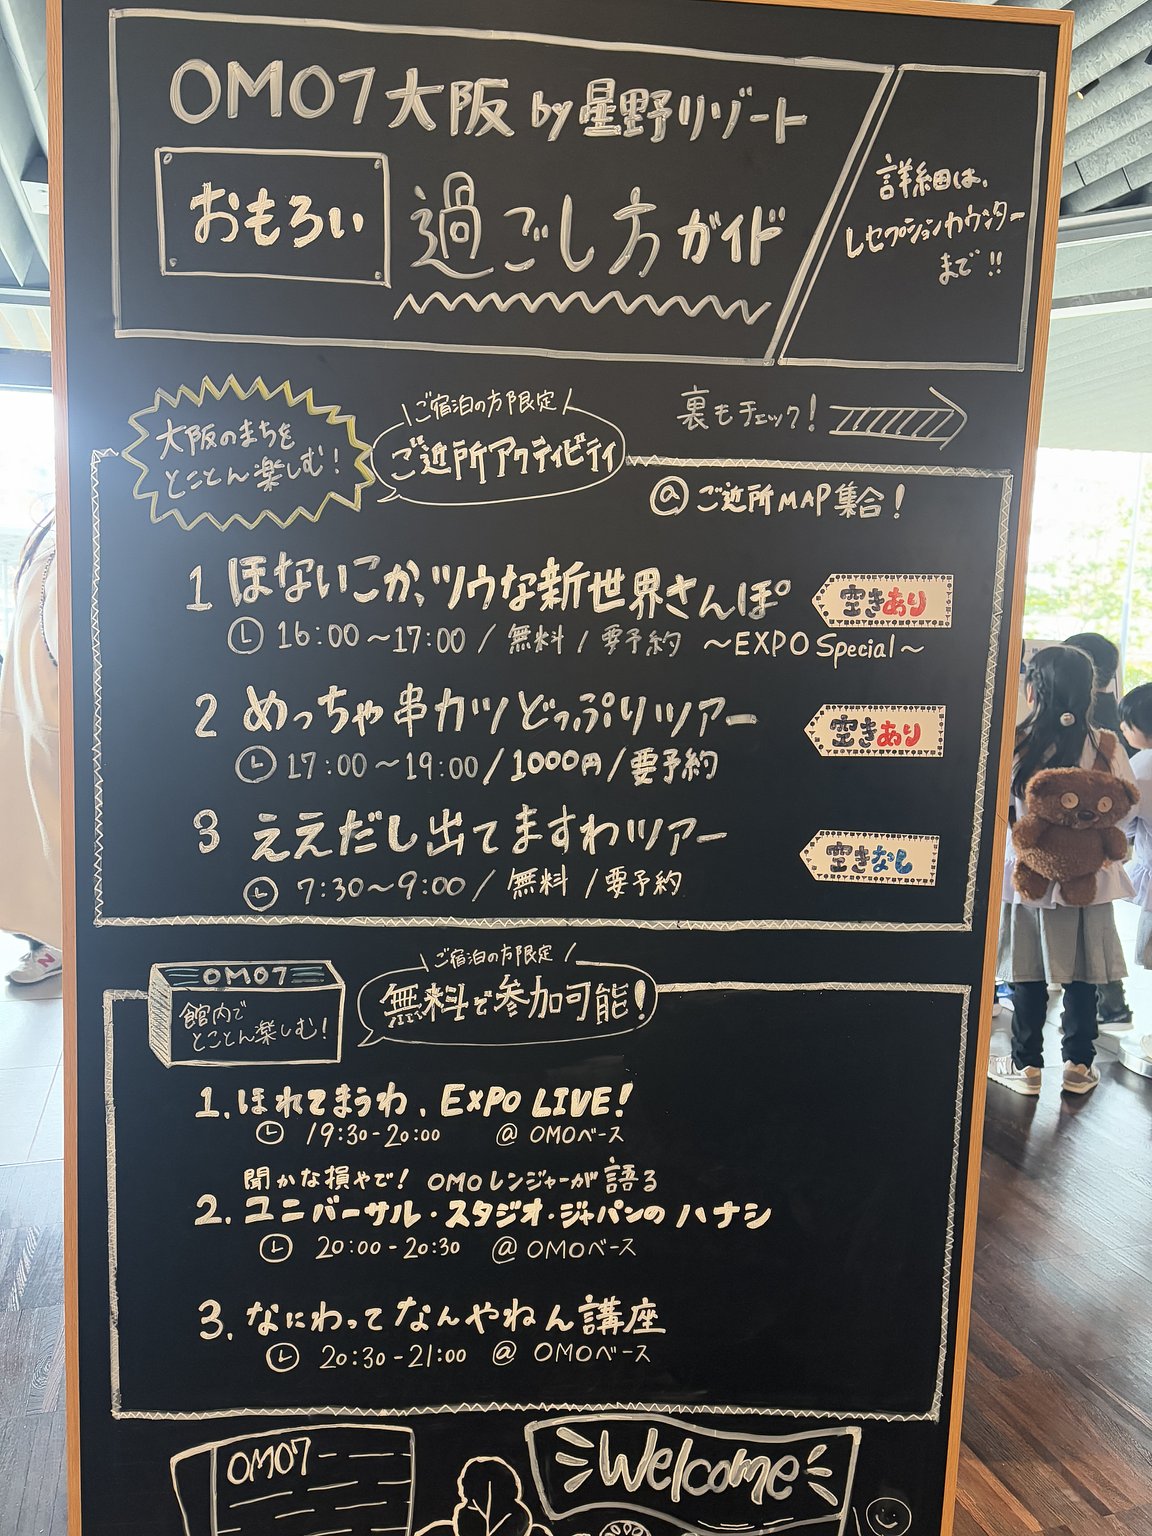 OMO7大阪 by 星野リゾート
おもろい
過ごし方ガイド
詳細は、
レセプションカウンター
まで!!
大阪のまちを
とことん楽しむ!
ご宿泊の方限定
ご近所アクティビティ
裏もチェック!
@ご近所MAP集合!
1 ほないこか、ツウな新世界さんぽ
空きあり
16:00～17:00 / 無料 / 要予約 ～EXPO Special～
2 めっちゃ串カツどっぷりツアー
空きあり
17:00～19:00 / 1000円 / 要予約
3 ええだし出てますわツアー
空きなし
7:30～9:00 / 無料 / 要予約
OMO7
館内で
とことん楽しむ!
ご宿泊の方限定
無料で参加可能!
1. ほれてまうわ、EXPO LIVE!
19:30-20:00 @OMOベース
聞かな損やで! OMOレンジャーが語る
2. ユニバーサル・スタジオ・ジャパンのハナシ
20:00-20:30 @OMOベース
3. なにわってなんやねん講座
20:30-21:00 @OMOベース
OMO7
Welcome
N